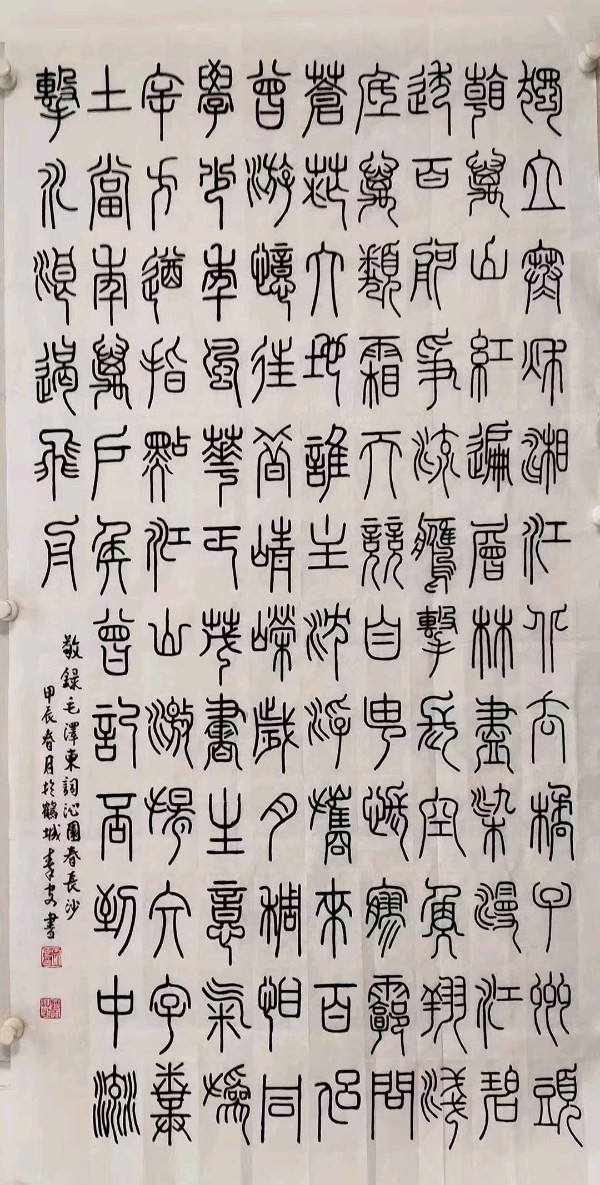 獨立寒秋湘江北去橘子洲頭
看萬山紅遍層林盡染漫江碧
透百舸爭流鷹擊長空魚翔淺
底萬類霜天競自由悵寥廓問
蒼茫大地誰主沈浮攜來百侶
曾游憶往昔崢嶸歲月稠恰同
學少年風華正茂書生意氣揮
斥方遒指點江山激揚文字糞
土當年萬戶侯曾記否到中流
擊水浪遏飛舟
敬錄毛澤東詞沁園春長沙
甲辰春月於鶴城書